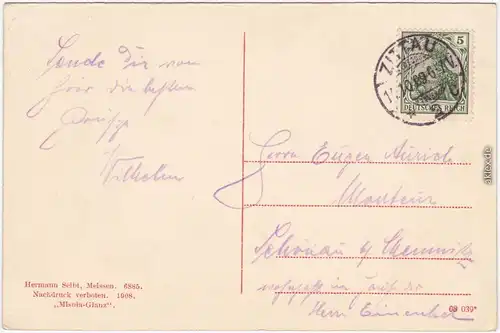 Sende Dir von
hier die besten
Grüße
Wilhelm
Herrn Eugen Aurich
Monteur
Schönau b/ Chemnitz
wohnhaft in
Herrn
Hermann Seibt, Meissen. 6885.
Nachdruck verboten. 1908.
„Misnia-Glanz“.
09 039*
5
ZITTAU
DEUTSCHES REICH